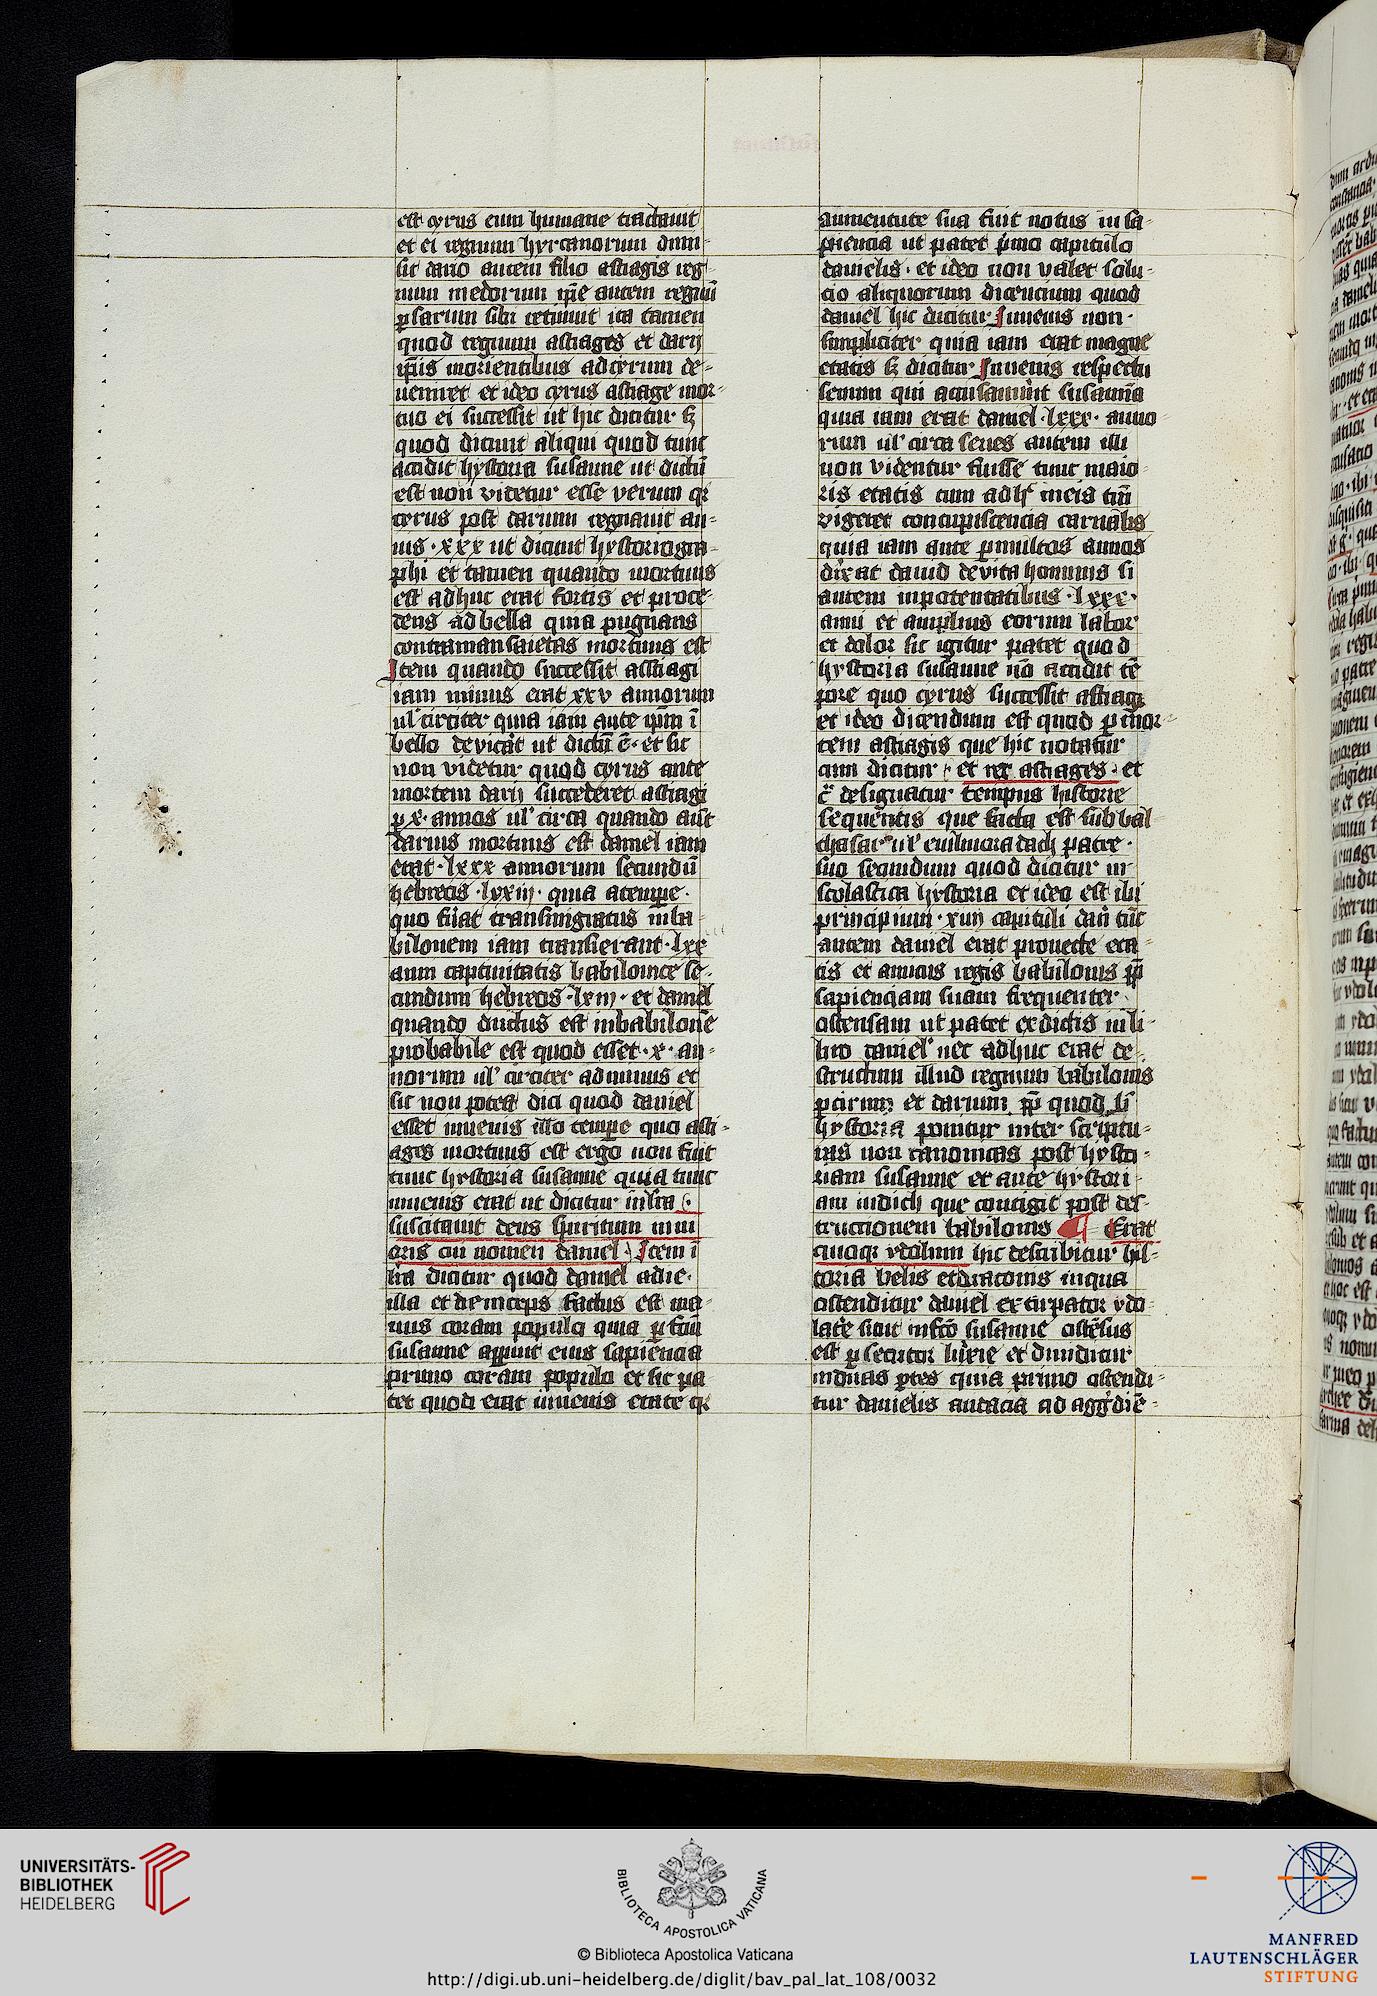 est cyrus eum humane tractauit
et ei regnum hyrcanorum dimi-
sit dario autem filio astiagis reg-
num medorum ip̄e autem regnū
ꝑsarum sibi retinuit ita tamen
quod regnum astiages et darij
ip̄is morientibus ad cyrum de-
ueniret et ideo cyrus astiage mor-
tuo ei successit ut hic dicitur sꝫ
quod dicunt aliqui quod tunc
accidit hystoria susanne ut dictū
est non videtur esse verum qꝛ
cyrus post darium regnauit an-
nis · xxx ut dicunt hystoriogra-
phi et tamen quando mortuus
est adhuc erat fortis et proce-
dens ad bella quia pugnans
contra mansaietas mortuus est
Item quando successit astiagi
iam minus erat xxv annorum
ul' circiter quia iam ante ip̄m ī
bello devicāt ut dictū ē · et sic
non videtur quod cyrus ante
mortem darij succederet astiagi
ꝑ x · annos ul' circa quando aūt
darius mortuus est daniel iam
erat · lxxx annorum secundū
hebreos · lxxiij · quia a tempe ·
quo fūat transmigratus in ba-
bilonem iam transierant · lxx
anni captiuitatis babilonice se-
cundum hebreos · lxiij · et daniel
quando ductus est in babilone
probabile est quod esset · x · an-
norum ul' circiter ad minus et
sic non potest dici quod daniel
esset iuuenis illo tempe quo asti-
ages mortuus est ergo non fuit
tunc hystoria susanne quia tunc
iuuenis erat ut dicitur infra ·
suscitauit deus spiritum iuni
oris cui nomen daniel · Item ī
lr̄a dicitur quod daniel a die ·
illa et deinceps factus est ma-
nus coram populo quia ꝑ fcm̄
susanne apparuit eius sapiencia
primo coram populo et sic pa
tet quod erat iuuenis etate qꝛ
a iuuentute sua fuit notus in sa-
piencia ut patet p̄mo capitulo
danielis · et ideo non valet solu-
cio aliquorum dicencium quod
daniel hic dicitur Iuuenis non ·
simpliciter quia iam erat magne
etatis sꝫ dicitur Iuuenis respectu
senum qui accusauūnt susannā
quia iam erat daniel · lxxx · anno
rum ul' circa senes autem illi
non videntur fuisse tunc maio-
ris etatis cum adhͨ in eis tm̄
vigeret concupiscencia carnalis
quia iam ante ꝑ multos annos
dix̄at dauid de vita hominis si
autem in potentatibus · lxxx ·
anni et amplius eorum labor
et dolor sic igitur patet quod
hystoria susanne nō accidit tē
pore quo cyrus successit astiagi
et ideo dicendum est quod ꝑ mor-
tem astiagis que hic notatur
cum dicitur · et rex astiages · et
c̄ designatur tempus historie
sequentis que facta est sub bal
thasar ul' euilmeradach patre ·
suo secundum quod dicitur in
scolastica hystoria et ideo est ibi
principium · xiiij capituli dan̄ tūc
autem daniel erat prouecte eta-
tis et amicus regis babilonis ꝓp̄
sapienciam suam frequenter
ostensam ut patet ex dictis in li-
bro daniel' nec adhuc erat de-
structum illud regnum babilonis
ꝑ cirum et darium ꝓp̄ quod h̄
hystoria ponitur inter scriptu-
ras non canonicas post hysto-
riam susanne et ante hystori-
am iudich que contigit post des-
tructionem babilonis ¶ Erat
quoqꝫ ydolum hic describitur his-
toria belis et draconis in qua
ostenditur daniel extirpator ydo-
latrē sicut in fcō susanne ostēsus
est ꝑsecutor luxīe et diuiditur
in duas ꝑtes quia primo ostendi-
tur danielis audacia ad aggͬdiē-
UNIVERSITÄTS-
BIBLIOTHEK
HEIDELBERG
BIBLIOTECA APOSTOLICA VATICANA
© Biblioteca Apostolica Vaticana
http://digi.ub.uni-heidelberg.de/diglit/bav_pal_lat_108/0032
MANFRED
LAUTENSCHLÄGER
STIFTUNG